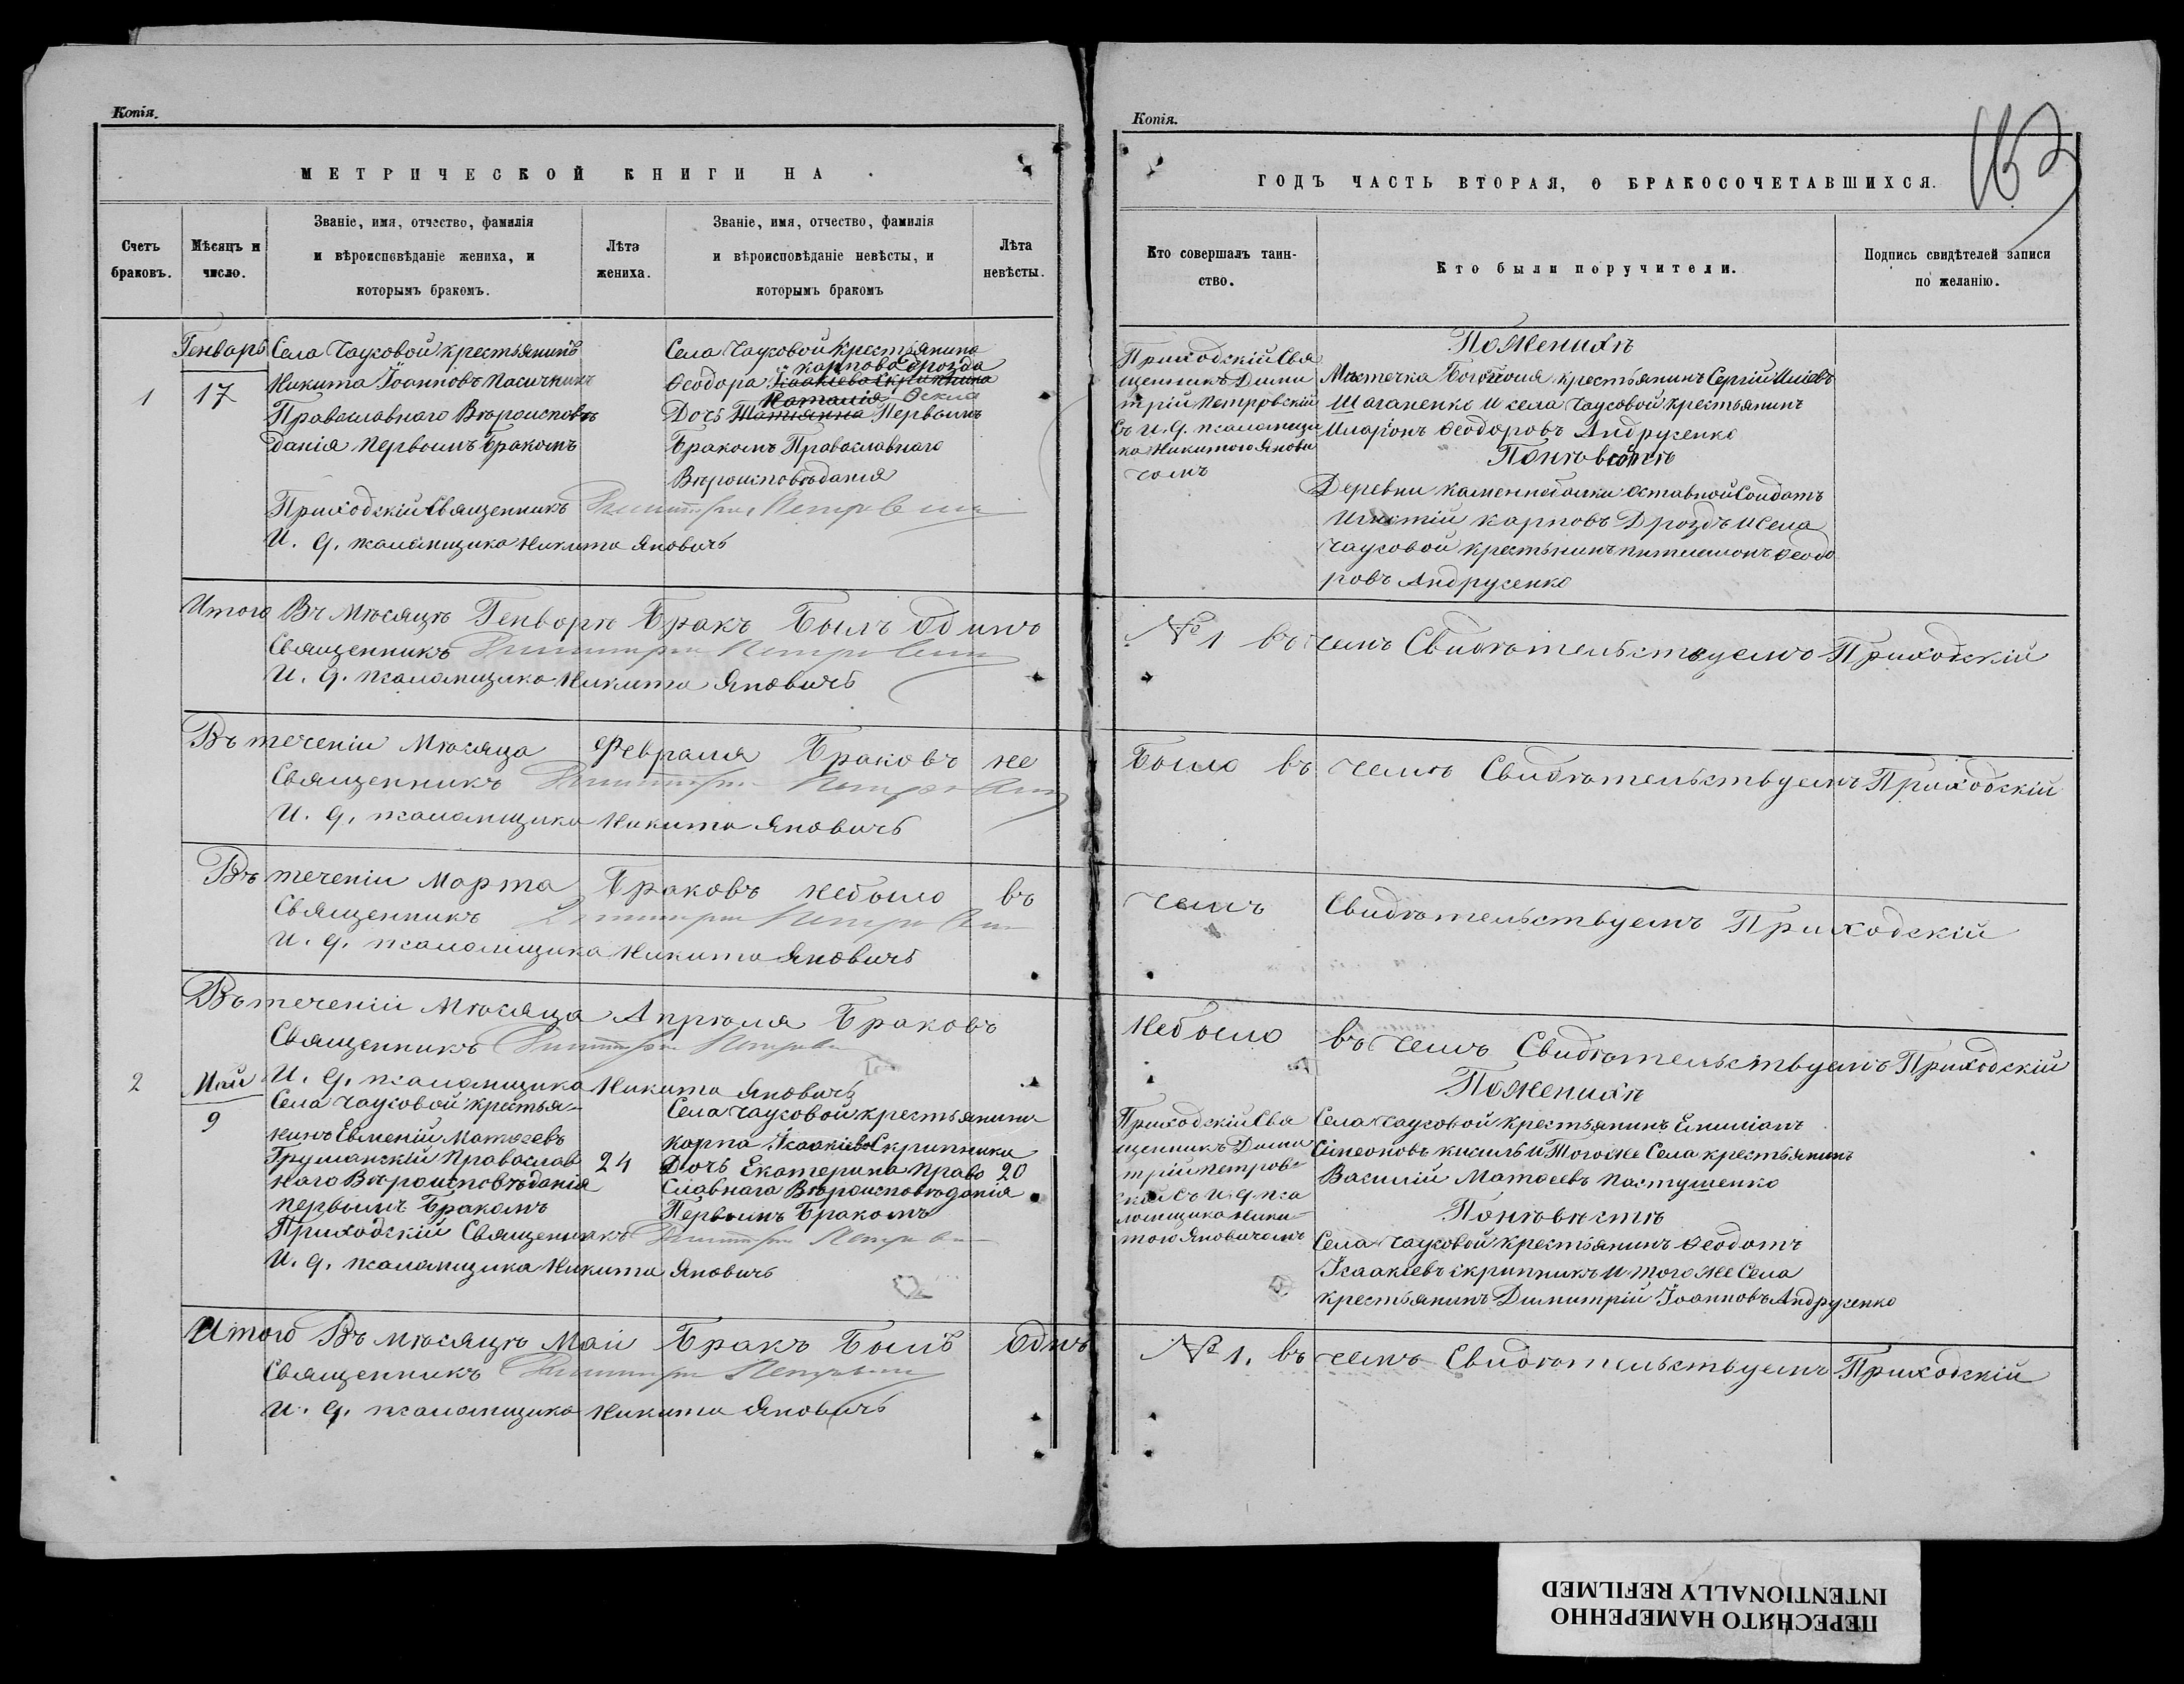 Копія.
МЕТРИЧЕСКОЙ КНИГИ НА
Счетъ браковъ.
Мѣсяцъ и число.
Званіе, имя, отчество, фамилія
и вѣроисповѣданіе жениха, и
которымъ бракомъ.
Лѣта жениха.
Званіе, имя, отчество, фамилія
и вѣроисповѣданіе невѣсты, и
которымъ бракомъ
Лѣта невѣсты.
1
Генварь
17
Села Чаусовой крестьянинъ
Никита Іоанновъ Пасичникъ
Православнаго Вѣроисповѣ
данія Первымъ Бракомъ
Села Чаусовой Крестьянина
Карпова Дрозда
Ѳеодора Исаакіева Скрипника
Наталія
Дочь Татіянна Первымъ
Бракомъ Православнаго
Вѣроисповѣданія
Приходскій Священникъ Димитрій Петровскій
И. д. псаломщика Никита Яновичъ
Итого Въ Мѣсяцѣ Генворѣ Бракъ Былъ Одинъ
Священникъ Димитрій Петровскій
И. д. псаломщика Никита Яновичъ
Въ теченіи Мѣсяца Февраля Браковъ не
Священникъ Димитрій Петровскій
И. д. псаломщика Никита Яновичъ
Въ теченіи Марта Браковъ небыло въ
Священникъ Димитрій Петровскій
И. д. псаломщика Никита Яновичъ
Въ теченіи Мѣсяца Апрѣля Браковъ
Священникъ Димитрій Петровскій
И. д. псаломщика Никита Яновичъ
2
Май
9
Села Чаусовой Крестья-
нинъ Евменій Матѳеевъ
Груманскій Православ
наго Вѣроисповѣданія
Первымъ Бракомъ
24
Села Чаусовой крестьянина
Карпа Исаакіева Скрипника
Дочь Екатерина Право
славнаго Вѣроисповѣданія
Первымъ Бракомъ
20
Приходскій Священникъ Димитрій Петровскій
И. д. псаломщика Никита Яновичъ
Итого Въ мѣсяцѣ Маи Бракъ Былъ Одинъ
Священникъ Димитрій Петровскій
И. д. псаломщика Никита Яновичъ
Копія.
ГОДЪ ЧАСТЬ ВТОРАЯ, О БРАКОСОЧЕТАВШИХСЯ.
Кто совершалъ таин-
ство.
Кто были поручители.
Подпись свидѣтелей записи
по желанію.
Приходскій Свя
щенникъ Дими
трій Петровскій
съ И. д. псаломщи
ка Никитою Янови
чемъ
По Женихѣ
Мѣстечка крестьянинъ Сергій
Шагапенко и села Чаусовой Крестьянинъ
Иларіонъ Ѳеодоровъ Андрусенко
По невѣстѣ
Деревни Каменной балки отставной Солдатъ
Карповъ Дроздъ и Села
Чаусовой крестьнинъ Ѳеодо
ровъ Андрусенко
№ 1 въ чемъ Свидѣтельствуемъ Приходскій
Было въ чемъ Свидѣтельствуемъ Приходскій
чемъ Свидѣтельствуемъ Приходскій
Небыло въ чемъ Свидѣтельствуемъ Приходскій
Приходскій Свя
щенникъ Дими
трій Петров-
скій съ И. д. пса
ломщика Ники-
тою Яновичемъ
По Женихѣ
Села Чаусовой Крестьянинъ Емиліанъ
Симеоновъ Кисиль и Того же Села крестьянинъ
Василій Матѳеевъ Пастушенко
По невѣстѣ
Села Чаусовой Крестьянинъ Ѳеодотъ
Исаакіевъ Скрипникъ и того же Села
крестьянинъ Димитрій Іоанновъ Андрусенко
№ 1. въ чемъ Свидѣтельствуемъ Приходскій
ПЕРЕСНЯТО НАМЕРЕННО
INTENTIONALLY REFILMED